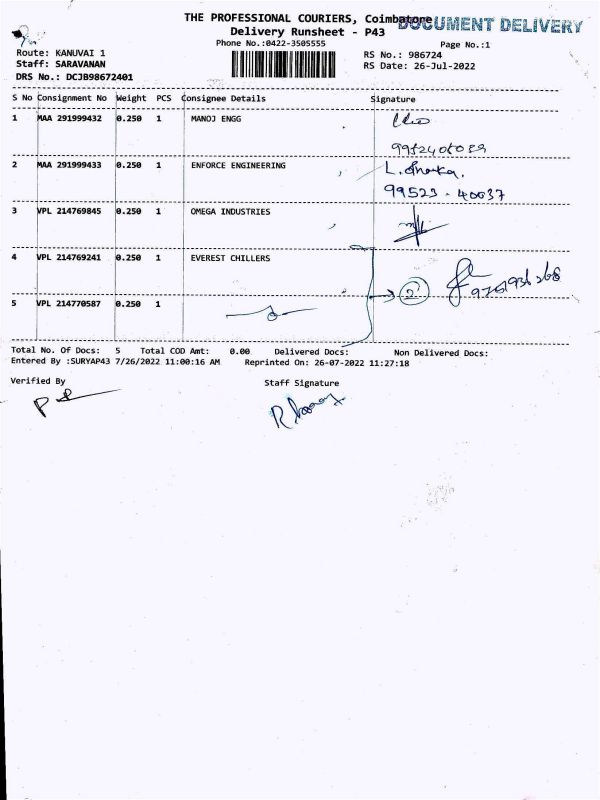 THE PROFESSIONAL COURIERS, Coimbatore
DOCUMENT DELIVERY
Delivery Runsheet - P43
Phone No.:0422-3505555
Page No.:1
Route: KANUVAI 1
RS No.: 986724
Staff: SARAVANAN
RS Date: 26-Jul-2022
DRS No.: DCJB98672401
S No Consignment No Weight PCS Consignee Details Signature
1 MAA 291999432 0.250 1 MANOJ ENGG
2 MAA 291999433 0.250 1 ENFORCE ENGINEERING
99523 - 40037
3 VPL 214769845 0.250 1 OMEGA INDUSTRIES
4 VPL 214769241 0.250 1 EVEREST CHILLERS
2
5 VPL 214770587 0.250 1
Total No. Of Docs: 5 Total COD Amt: 0.00 Delivered Docs: Non Delivered Docs:
Entered By :SURYAP43 7/26/2022 11:00:16 AM Reprinted On: 26-07-2022 11:27:18
Verified By
Staff Signature